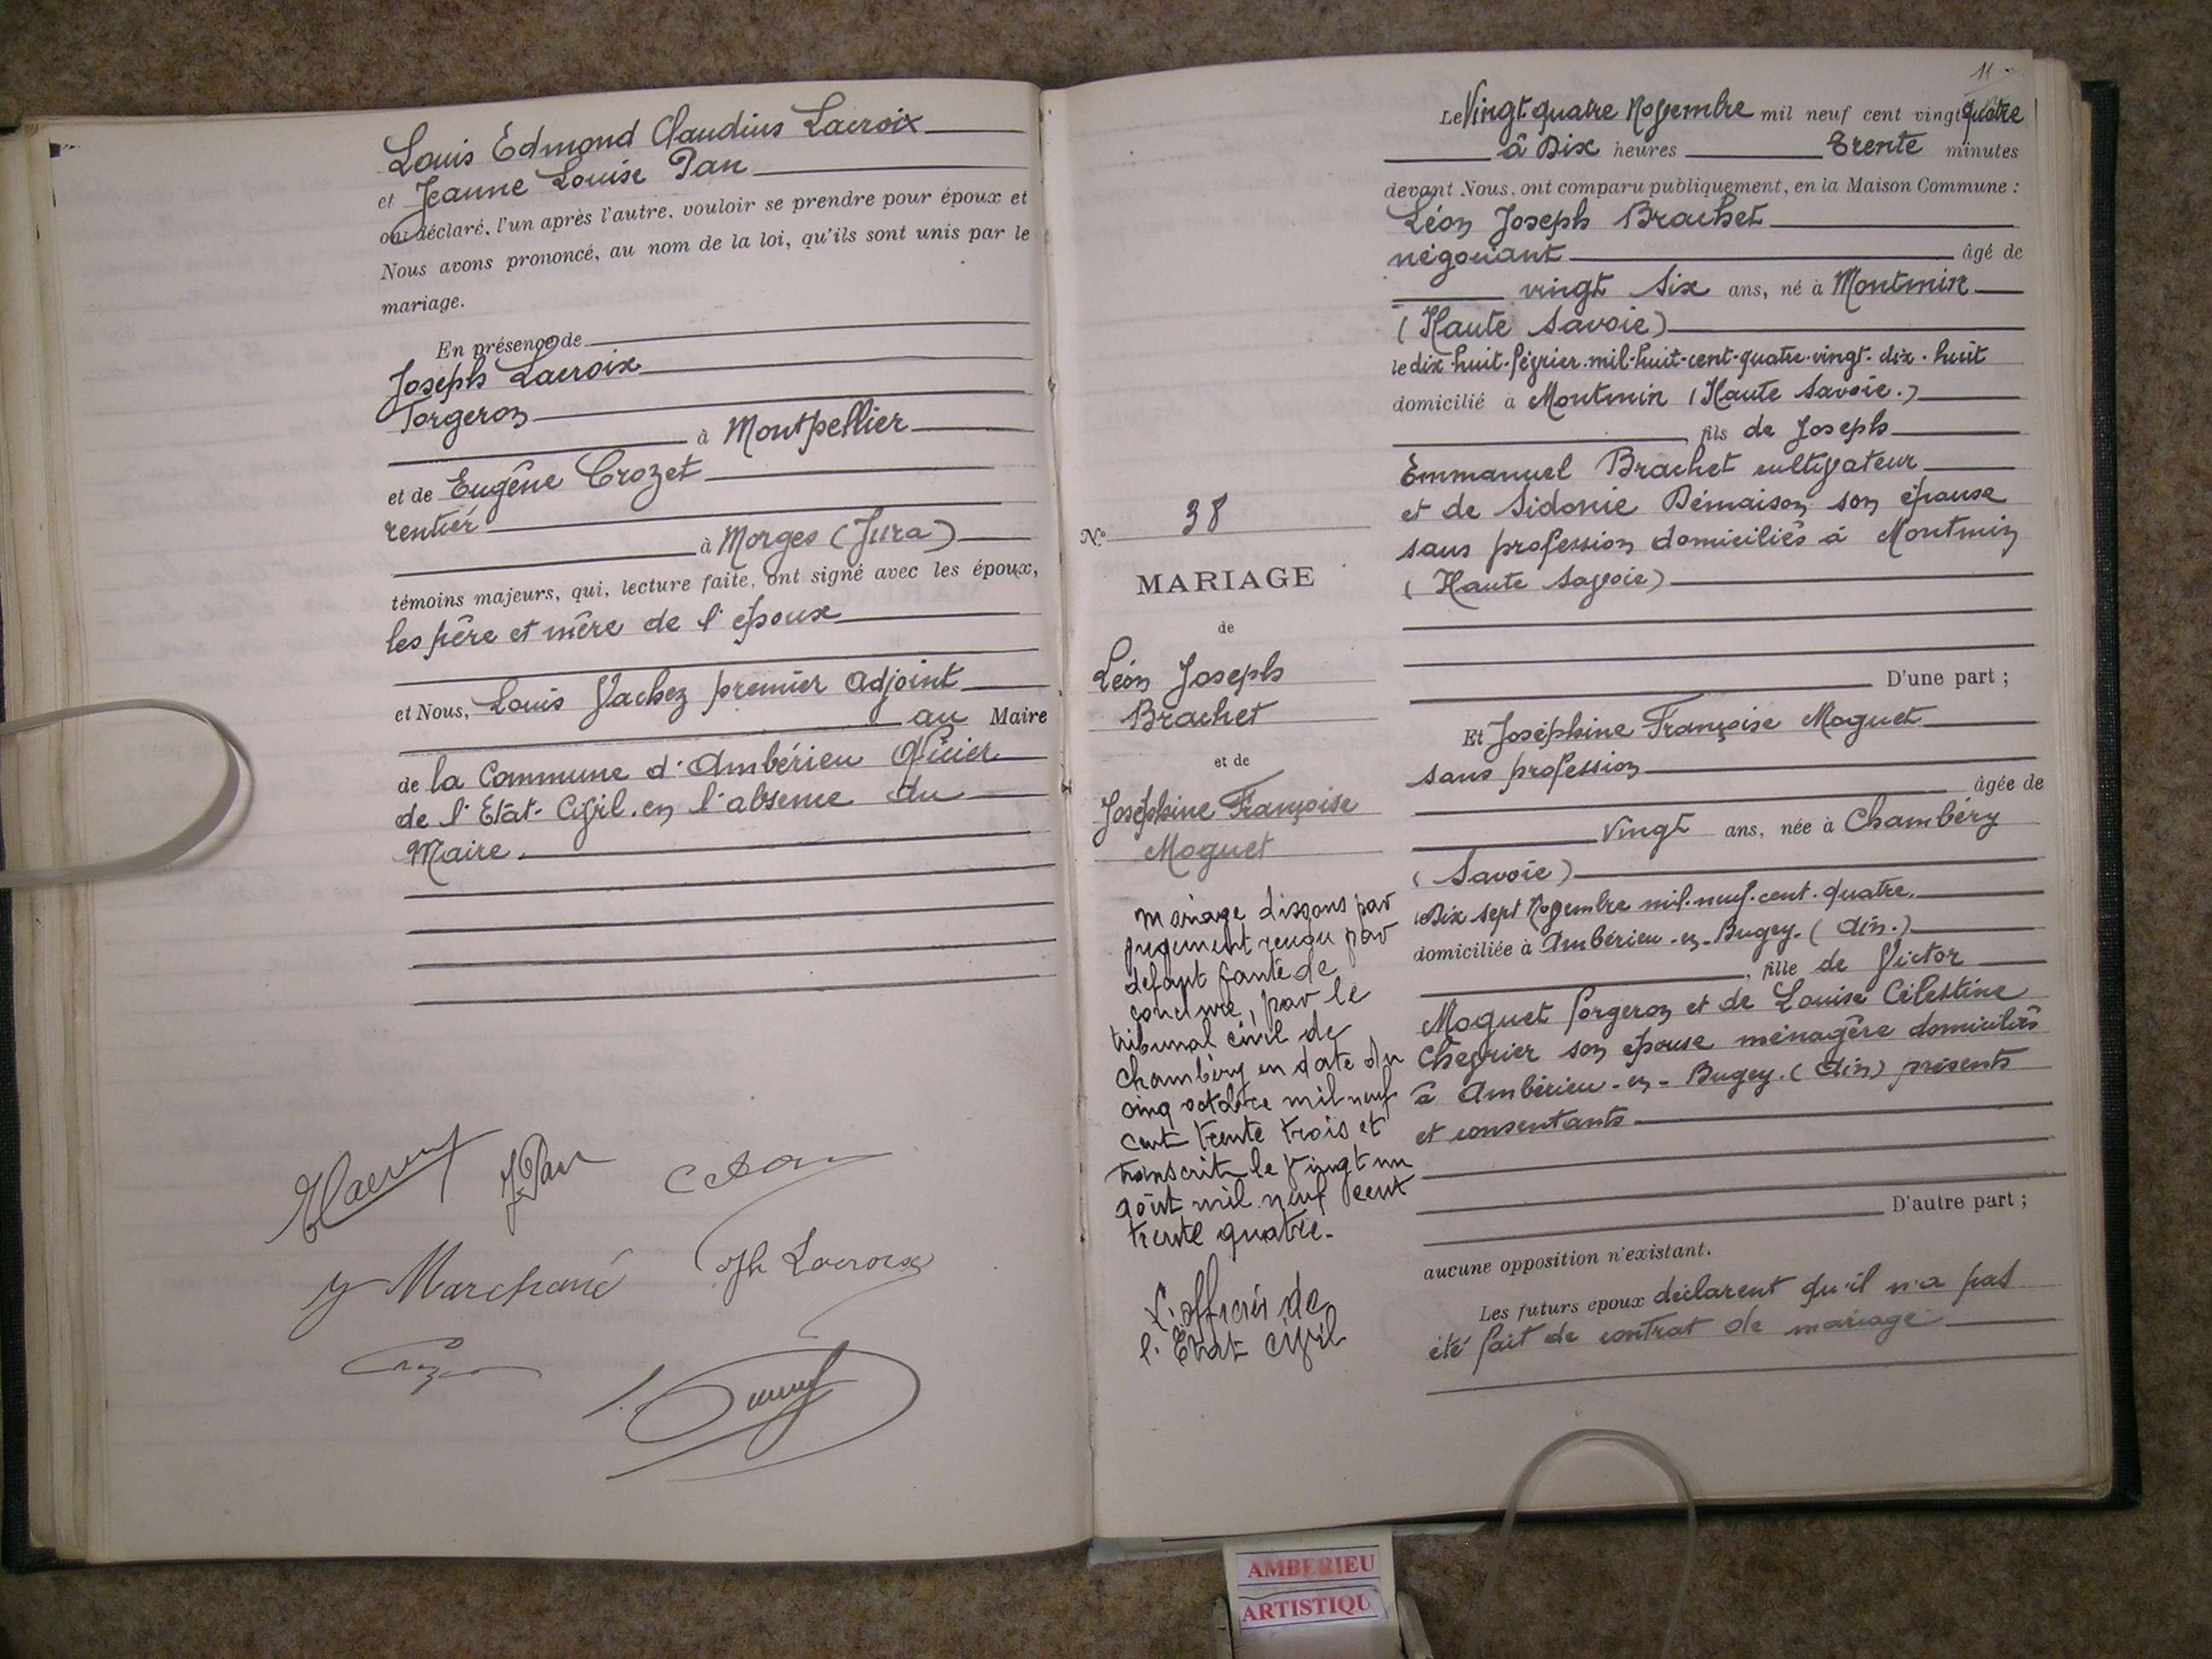 Louis Edmond Claudius Lacroix
et Jeanne Louise Pan
ont déclaré, l'un après l'autre, vouloir se prendre pour époux et
Nous avons prononcé, au nom de la loi, qu'ils sont unis par le
mariage.
En présence de
Joseph Lacroix
Forgeron
à Montpellier
et de Eugène Crozet
rentier
à Morges (Jura)
témoins majeurs, qui, lecture faite, ont signé avec les époux,
les père et mère de l'époux
et Nous, Louis Vachez premier adjoint
au Maire
de la Commune d'Ambérieu Officier
de l'Etat-Civil en l'absence du
Maire.
J. Pan
Marchand
Jph Lacroix
11
Le Vingt quatre Novembre mil neuf cent vingt quatre
à Dix heures Trente minutes
devant Nous, ont comparu publiquement, en la Maison Commune :
Léon Joseph Brachet
négociant âgé de
vingt six ans, né à Montmin
(Haute Savoie)
le dix-huit-février-mil-huit-cent-quatre-vingt-dix-huit
domicilié à Montmin (Haute Savoie.)
, fils de Joseph
Emmanuel Brachet cultivateur
et de Sidonie Démaison son épouse
sans profession domiciliés à Montmin
(Haute Savoie)
D'une part ;
Et Joséphine Françoise Moguet
sans profession
âgée de
Vingt ans, née à Chambéry
(Savoie)
le Dix sept Novembre mil-neuf-cent-quatre.
domiciliée à Ambérieu-en-Bugey. (Ain.)
, fille de Victor
Moguet forgeron et de Louise Célestine
Chevrier son épouse ménagère domiciliés
à Ambérieu-en-Bugey. (Ain) présents
et consentants
D'autre part ;
aucune opposition n'existant.
Les futurs époux déclarent qu'il n'a pas
été fait de contrat de mariage
N° 38
MARIAGE
de
Léon Joseph
Brachet
et de
Joséphine Françoise
Moguet
Mariage dissous par
jugement rendu par
défaut faute de
conclure, par le
tribunal civil de
Chambéry en date du
cinq octobre mil neuf
cent trente trois et
transcrit le vingt un
août mil neuf cent
trente quatre.
L'officier de
l'Etat civil
AMBERIEU
ARTISTIQU